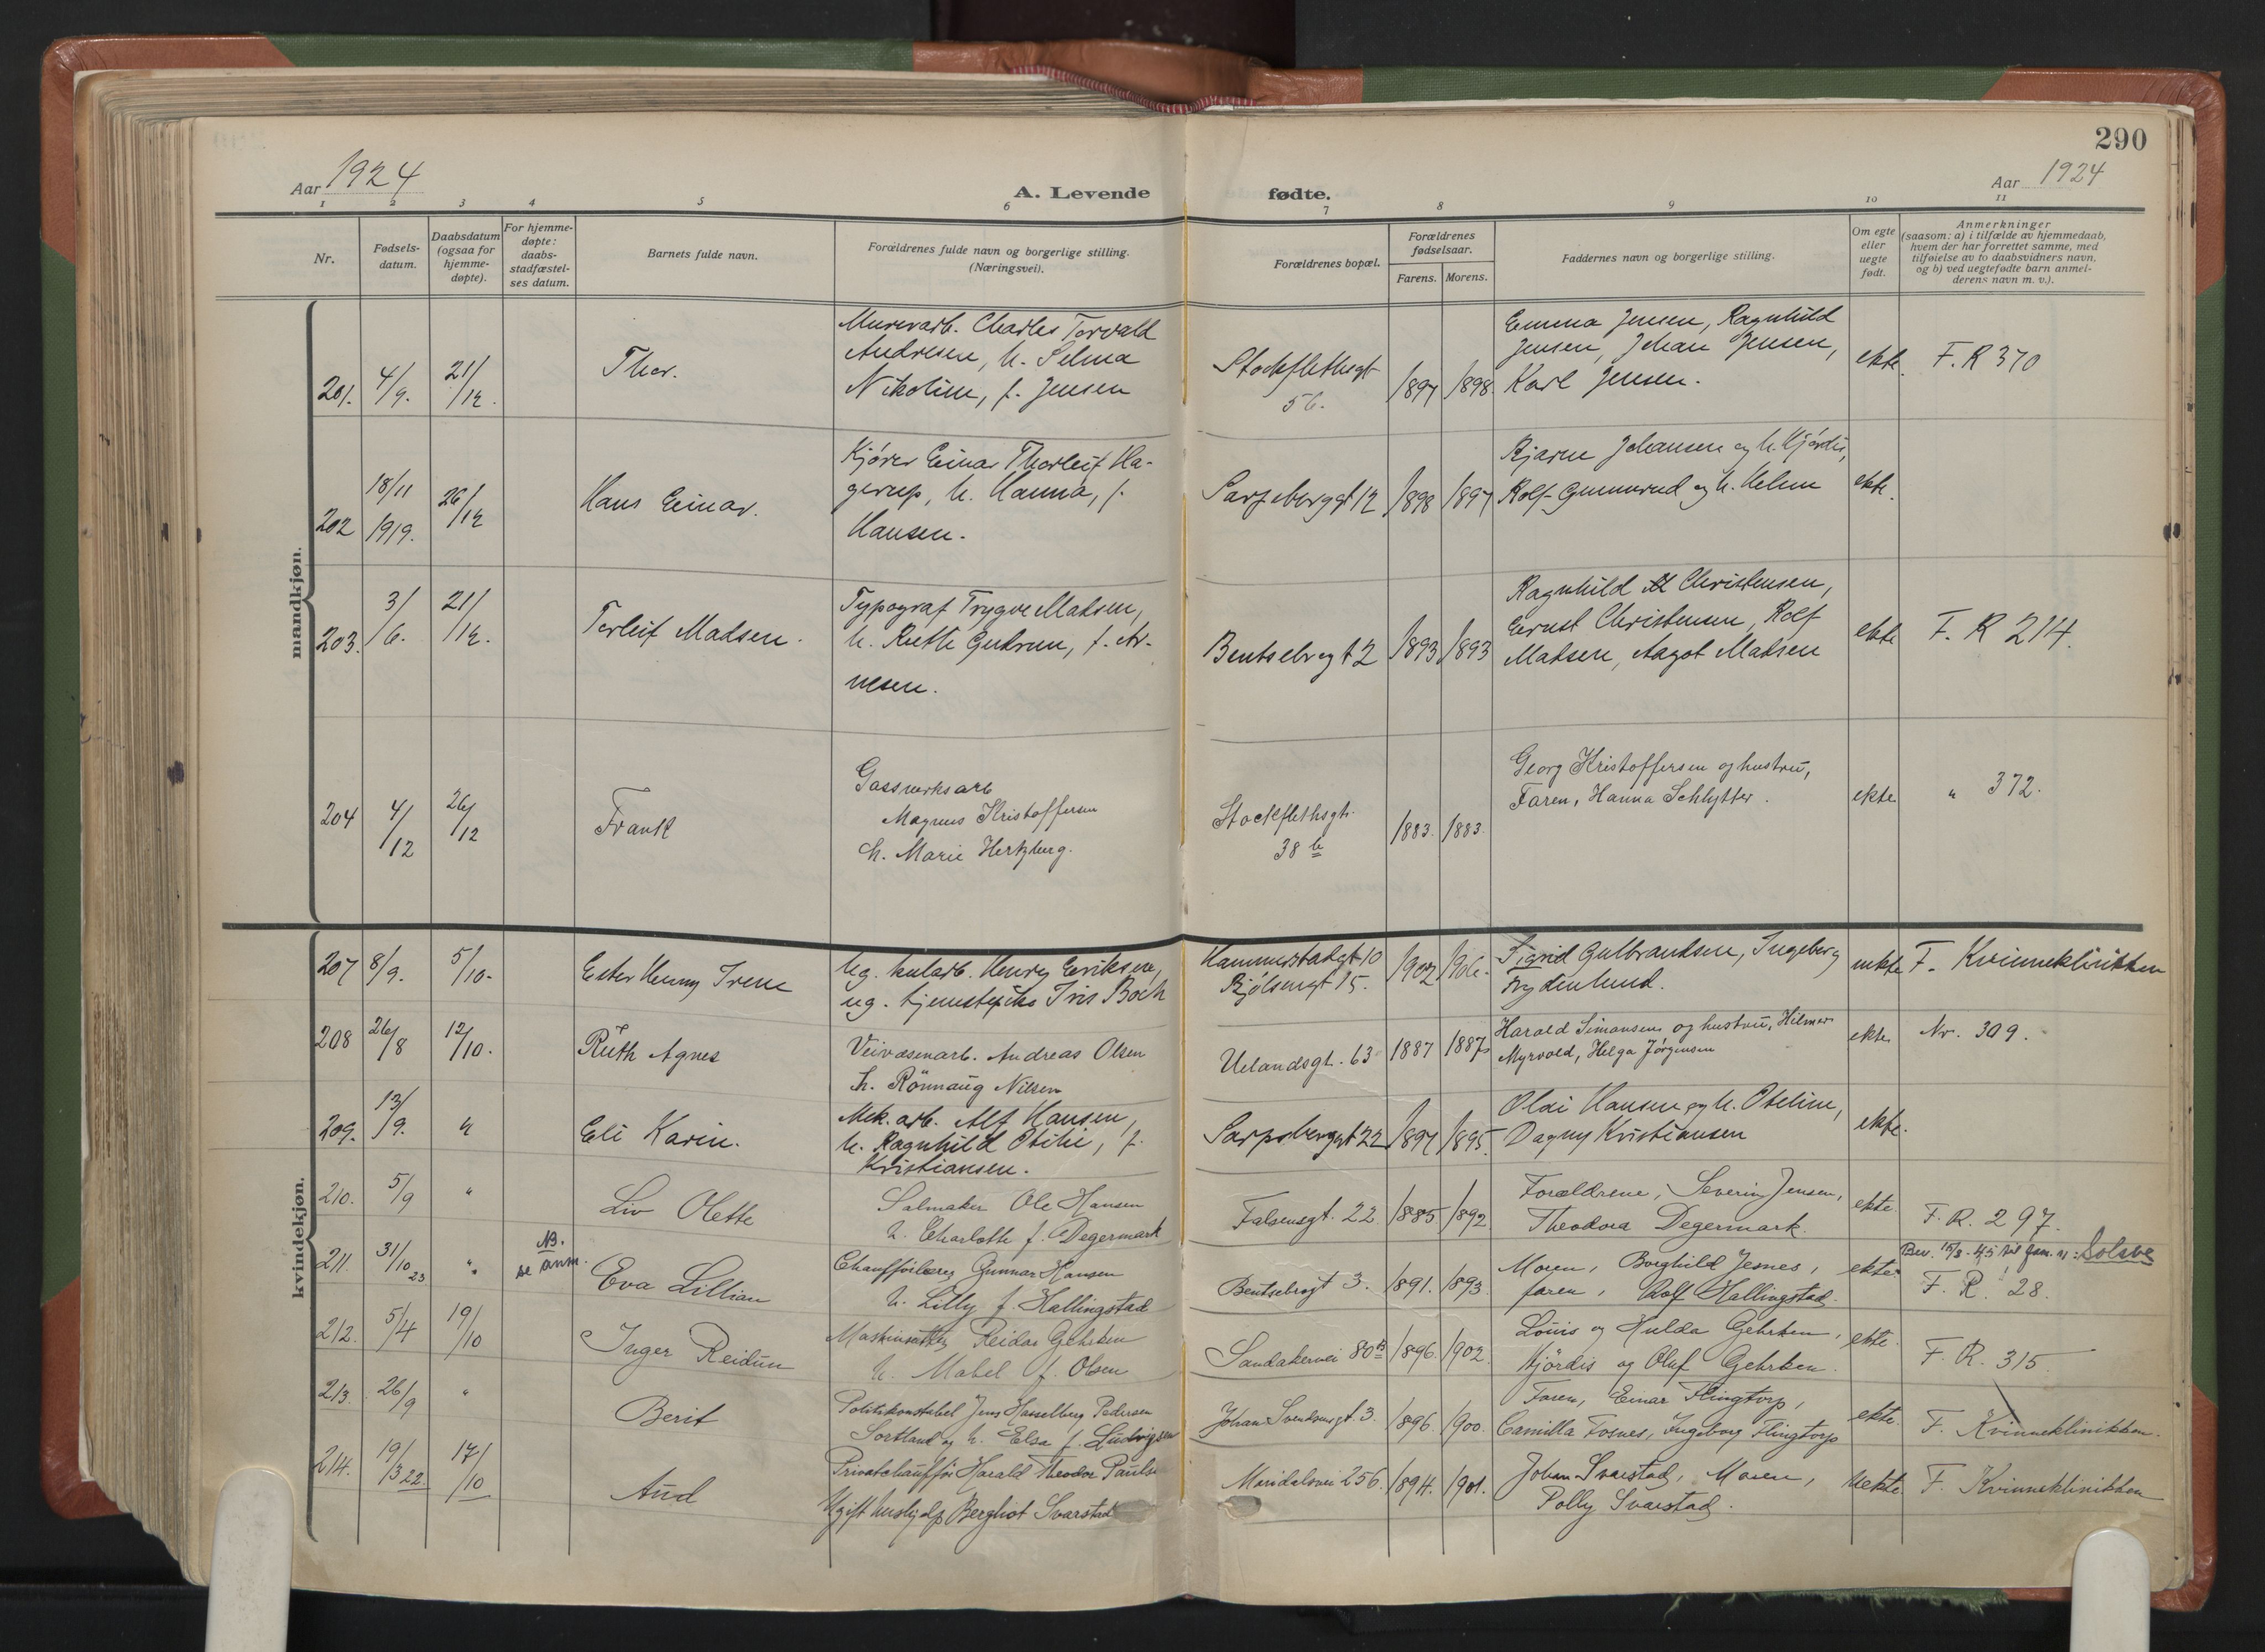 290
Aar 1924
A. Levende fødte.
Aar 1924
1 2 3 4 5 6 7 8 9 10 11
Nr.
Fødsels-
datum.
Daabsdatum
(ogsaa for
hjemme-
døpte).
For hjemme-
døpte:
daabs-
stadfæstel-
ses datum.
Barnets fulde navn.
Forældrenes fulde navn og borgerlige stilling.
(Næringsvei).
Forældrenes bopæl.
Forældrenes
fødselsaar.
Farens. Morens.
Faddernes navn og borgerlige stilling.
Om egte
eller
uegte
født.
Anmerkninger
(saasom: a) i tilfælde av hjemmedaab,
hvem der har forrettet samme, med
tilføielse av to daabsvidners navn,
og b) ved uegtefødte barn anmel-
derens navn m. v.).
mandkjøn.
201. 4/9. 21/12.
Thor.
Murerarb. Charles Torvald
Andresen, h. Selma
Nikoline, f. Jensen
Stockflethsgt
56.
1897 1898.
Emma Jensen, Ragnhild
Jensen, Johan Jensen,
Karl Jensen.
ekte.
F. R 370
202 18/11
1919. 26/12
Hans Einar.
Kjører Einar Thorleif Ha-
gerup, h. Hanna, f.
Hansen.
Sarpsborggt 12
1898 1897
Bjarne Johansen og h. Hjørdis,
Rolf Gummerud og h. Helene
ekte.
203. 3/6. 21/12.
Torleif Madsen.
Typograf Trygve Madsen,
h. Ruth Gudrun, f. Ar-
nesen.
Bentsebrgt 2
1893 1893
Ragnhild Christensen,
Ernst Christensen, Rolf
Madsen, Aagot Madsen
ekte
F. R 214.
204 4/12 26/12
Frank
Gassverksarb
Magnus Kristoffersen
h. Marie Hertzberg.
Stockflethsgt.
38 b
1883. 1883.
Georg Kristoffersen og hustru,
Faren, Hanna Schlytter.
ekte
" 372.
kvindekjøn.
207 8/9. 5/10.
Ester Henny Irene
Ug. kularb. Henry Eriksen,
ug. tjenestepike Iris Boch
Hammerstadgt 10
Bjølsengt 15.
1902 1906.
Sigrid Gulbrandsen, Ingeborg
Frydenlund.
uekte
F. Kvinneklinikken
208 26/8 12/10.
Ruth Agnes
Veivæsenarb. Andreas Olsen
h. Rønnaug Nilsen
Uelandsgt. 63
1887 1887
Harald Simonsen og hustru, Hilmer
Myrvold, Helga Jørgensen
ekte
Nr. 309.
209. 13/9. "
Eli Karin.
Mek. arb. Alf Hansen,
h. Ragnhild Otilie, f.
Kristiansen.
Sarpsborggt 22
1897 1895.
Olai Hansen og h. Oteline,
Dagny Kristiansen
ekte.
210. 5/9 "
Liv Olette
Salmaker Ole Hansen
h. Charlotte f. Degermark
Falsensgt. 22.
1885 1892
Forældrene, Severin Jensen,
Theodora Degermark.
ekte.
F. R. 297.
211. 31/10 23 "
NB.
se anm.
Eva Lillian
Chauffør Gunnar Hansen
h. Lilly f. Hallingstad
Bentsebrogt 3.
1891. 1893.
Moren, Borghild Jesnes,
faren, Rolf Hallingstad.
ekte
Bev. 15/3-45 til fam. n: Solsve
F. R. 28.
212. 5/4 19/10
Inger Reidun
Maskinsetter Reidar Gehrken
h. Mabel f. Olsen
Sandakervei 80 b
1896. 1902.
Louis og Hulda Gehrken,
Hjørdis og Oluf Gehrken.
ekte.
F. R. 315
213. 26/9 "
Berit
Politikonstabel Jens Hasselberg Pedersen
Sortland og h. Elsa f. Ludvigsen
Johan Svendsensgt. 3.
1896. 1900.
Faren, Einar Flingtorp,
Camilla Fosnes, Ingeborg Flingtorp
ekte.
F. Kvinneklinikken.
214. 19/3 22. 17/10
Aud
Privatchauffør Harald Theodor Paulsen
Ugift hushjelp Bergliot Svarstad
Maridalsvei 256.
1894. 1901.
Johan Svarstad, Moren,
Polly Svarstad.
uekte
F. Kvinneklinikken